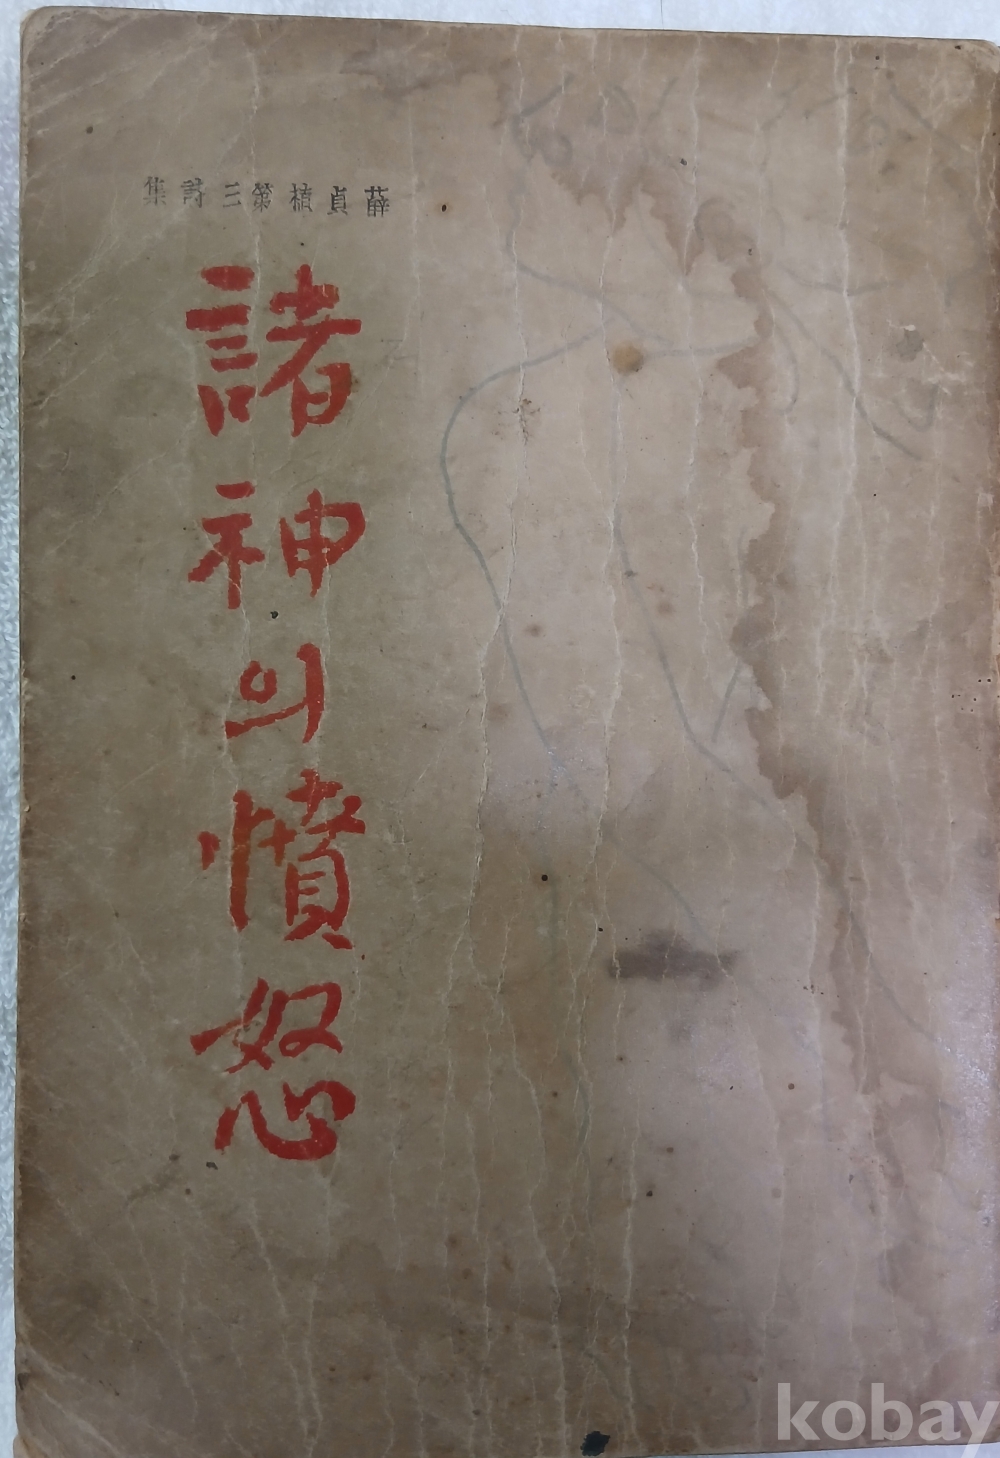 薛貞植第三詩集
諸神의憤怒
kobay